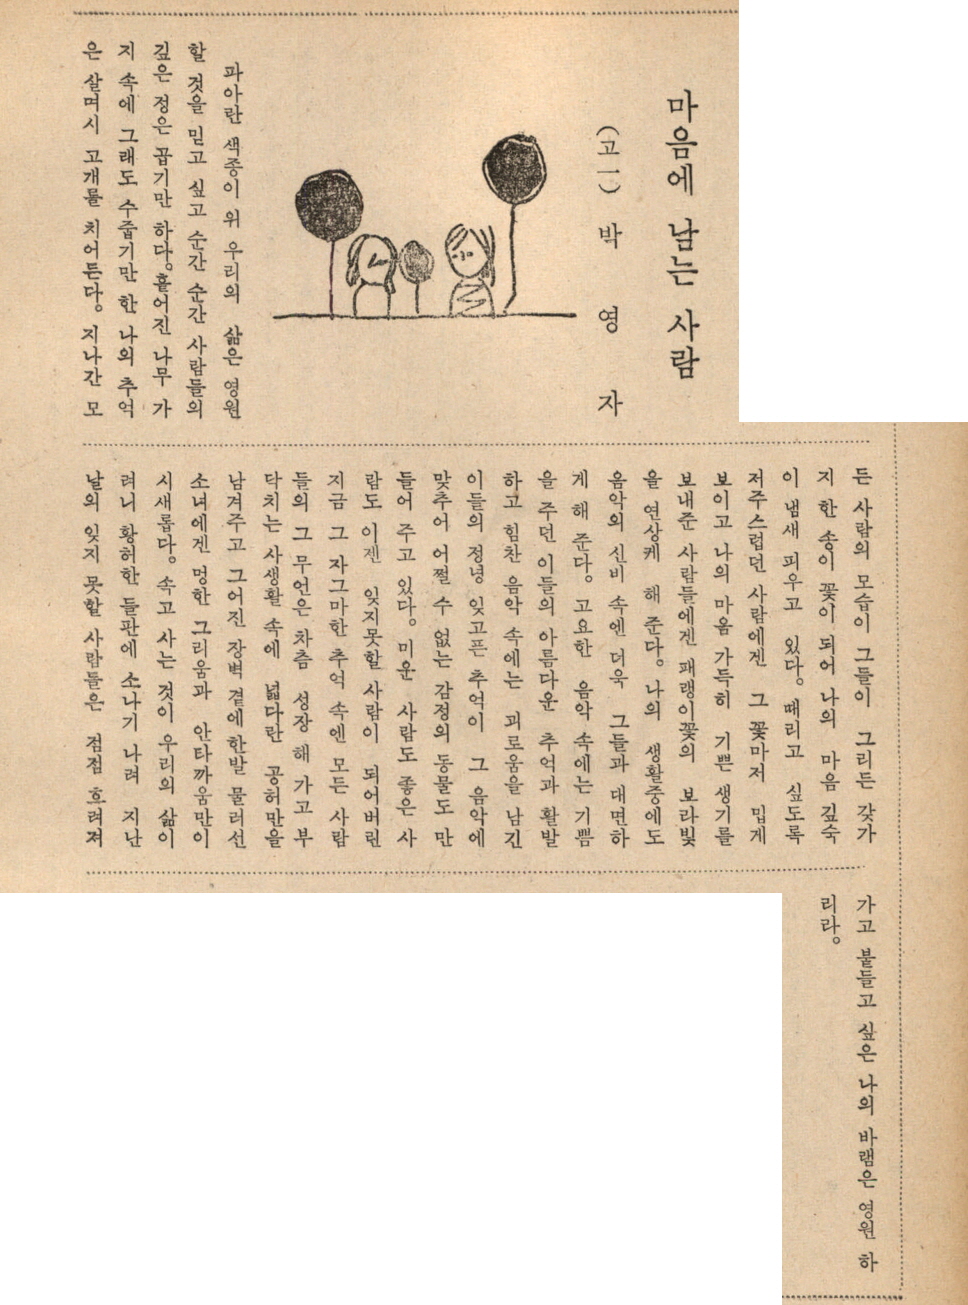 마음에 남는 사람
(고一) 박 영 자
파아란 색종이 위 우리의 삶은 영원
할 것을 믿고 싶고 순간 순간 사람들의
깊은 정은 곱기만 하다。흩어진 나무 가
지 속에 그래도 수줍기만 한 나의 추억
은 살며시 고개를 치어든다。지나간 모
든 사람의 모습이 그들이 그리든 갖가
지 한 송이 꽃이 되어 나의 마음 깊숙
이 냄새 피우고 있다。때리고 싶도록
저주스럽던 사람에겐 그 꽃마저 밉게
보이고 나의 마음 가득히 기쁜 생기를
보내준 사람들에겐 패랭이꽃의 보라빛
을 연상케 해 준다。나의 생활중에도
음악의 신비 속엔 더욱 그들과 대면하
게 해 준다。고요한 음악 속에는 기쁨
을 주던 이들의 아름다운 추억과 활발
하고 힘찬 음악 속에는 괴로움을 남긴
이들의 정녕 잊고픈 추억이 그 음악에
맞추어 어쩔 수 없는 감정의 동물도 만
들어 주고 있다。미운 사람도 좋은 사
람도 이젠 잊지못할 사람이 되어버린
지금 그 자그마한 추억 속엔 모든 사람
들의 그 무언은 차츰 성장 해 가고 부
닥치는 사생활 속에 넓다란 공허만을
남겨주고 그어진 장벽 곁에한발 물러선
소녀에겐 멍한 그리움과 안타까움만이
시새롭다。속고 사는 것이 우리의 삶이
려니 황허한 들판에 소나기 나려 지난
날의 잊지 못할 사람들은 점점 흐려져
가고 붙들고 싶은 나의 바램은 영원 하
리라。